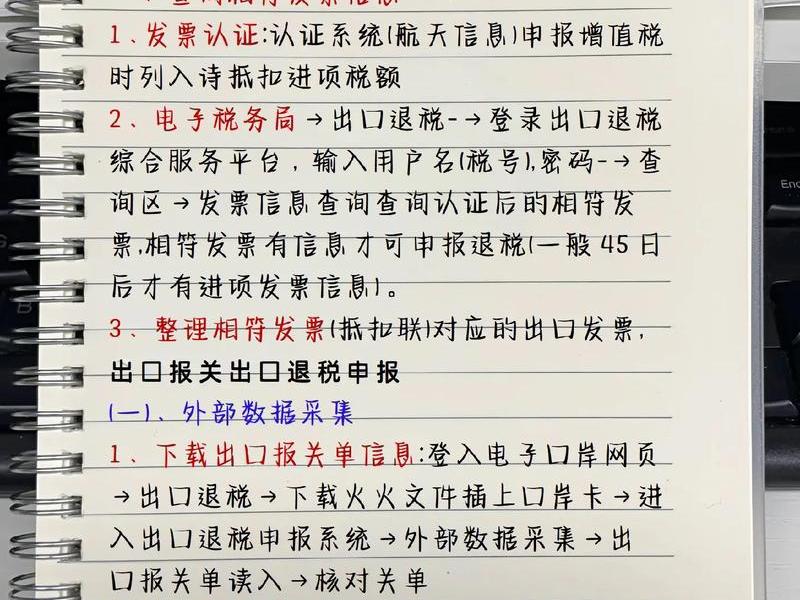 查询相符发票信息
1、发票认证:认证系统(航天信息)申报增值税
时列入诗抵扣进项税额
2、电子税务局→出口退税-→登录出口退税
综合服务平台，输入用户名(税号),密码-→查
询区→发票信息查询查询认证后的相符发
票,相符发票有信息才可申报退税(一般45日
后才有进项发票信息)。
3、整理相符发票(抵扣联)对应的出口发票,
出口报关出口退税申报
(一)、外部数据采集
1、下载出口报关单信息:登入电子口岸网页
→出口退税→下载火火文件插上口岸卡→进
入出口退税申报系统→外部数据采集→出
口报关单读入→核对关单